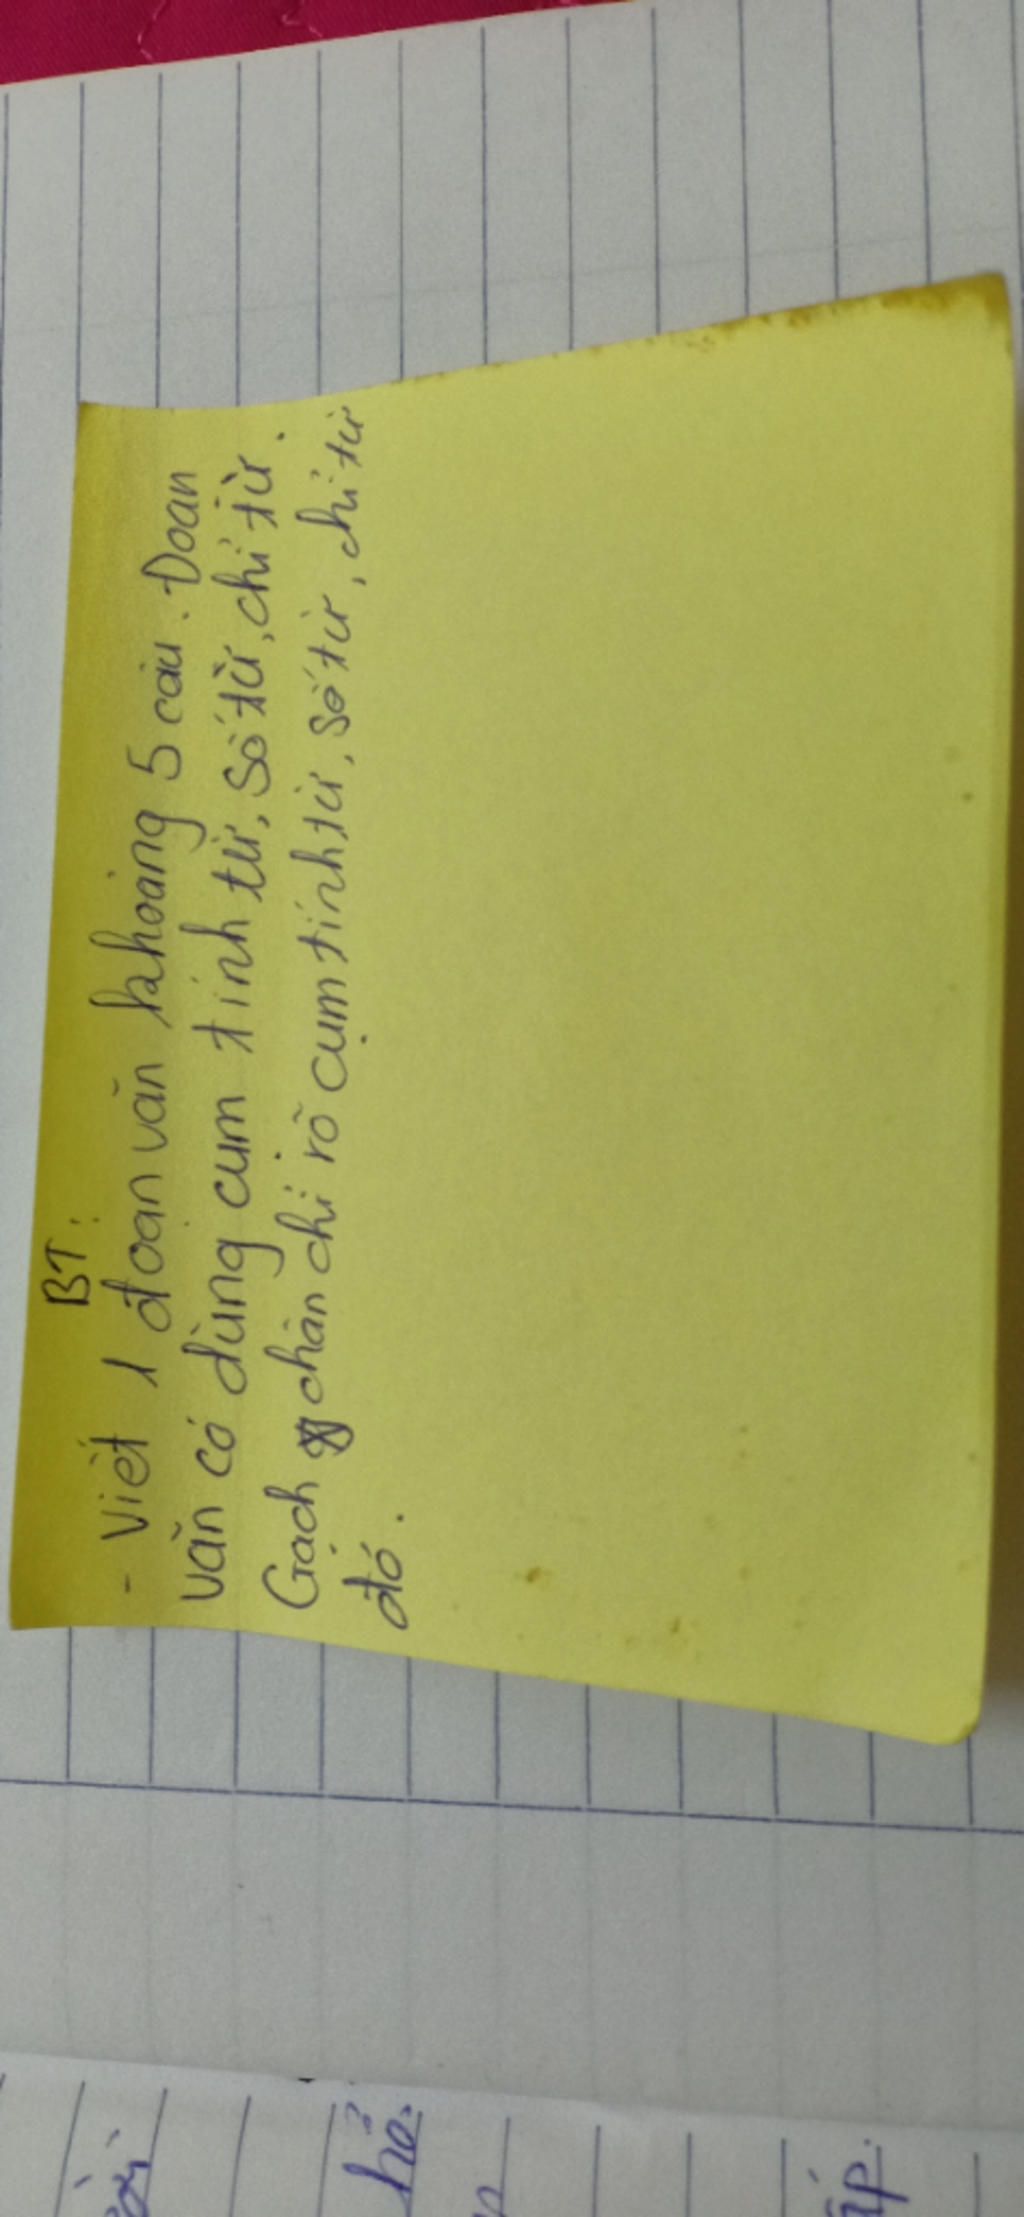 BT:
- Viết 1 đoạn văn khoảng 5 câu. Đoạn
văn có dùng cụm tính từ, số từ, chỉ từ.
Gạch chân chỉ rõ cụm tính từ, số từ, chỉ từ
đó.